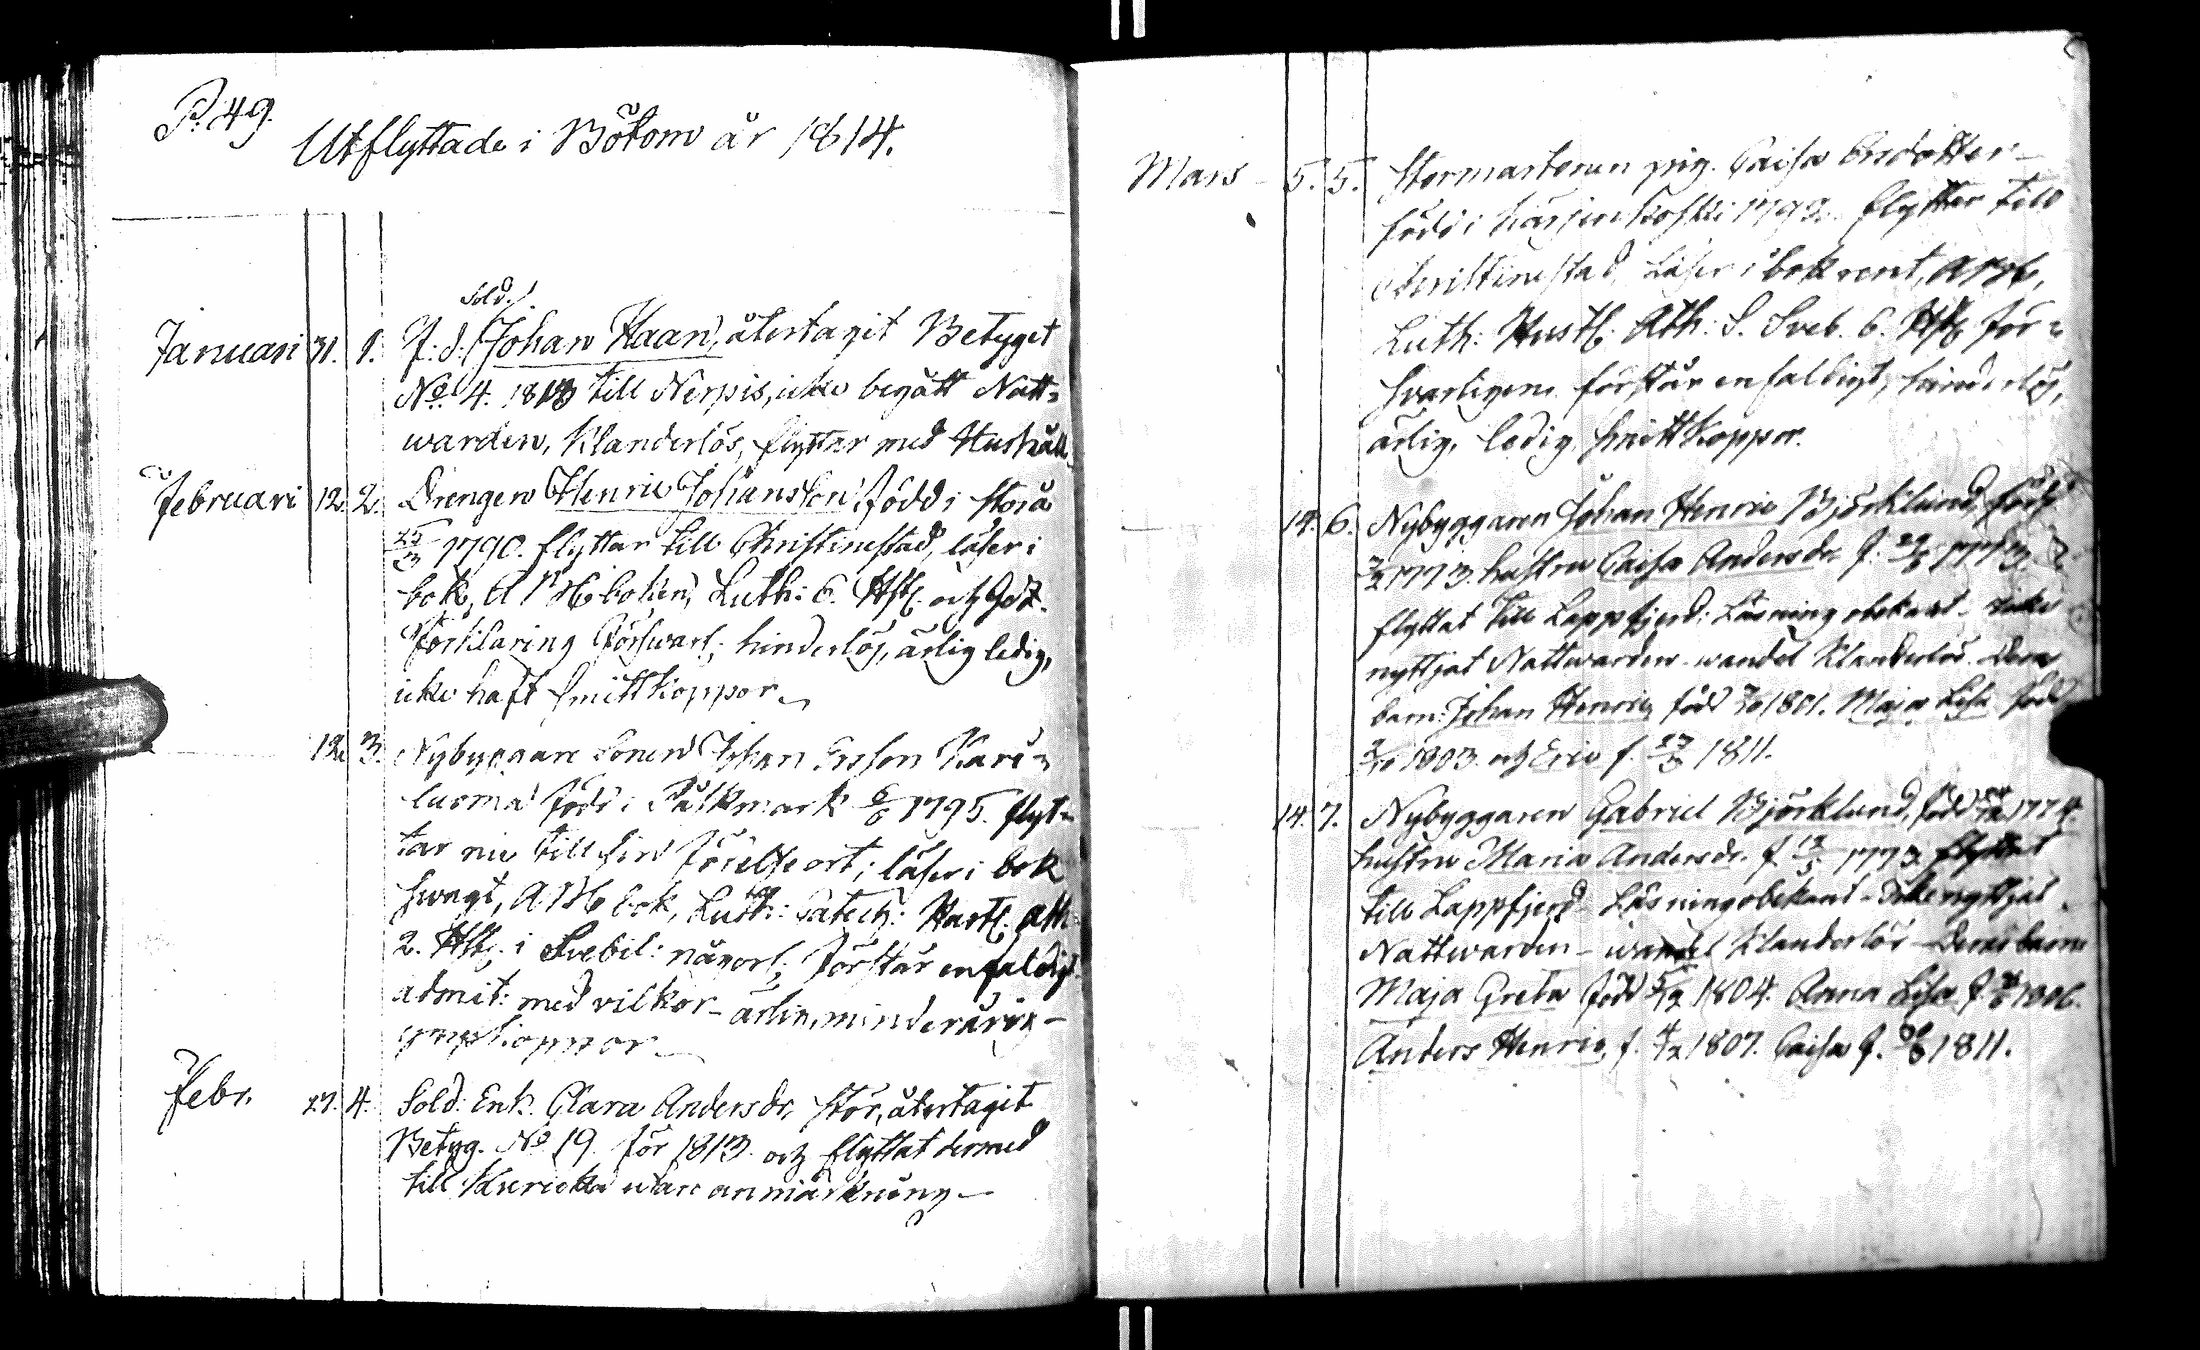 P. 49.
Utflyttade i Bötom år 1814.
Januari 31. 1. F. d. Sold. Johan Haan, återtagit Betyget
No. 4. 1813 till Nerpis, icke begått Natt=
warden, Klanderlös, flyttar med Hushåll.
Februari 12. 2. Drengen Henric Johansson född i Storå
25/3 1790. flyttar till Christinestad, läser i
bok, A M boken, Luth: 6. Hst. och Göz.
Förklaring Försvarl; hinderlös, ärlig ledig,
icke haft smittkoppor
12. 3. Nybyggare Sonen Johan Ersson Kari=
luoma född i Pälkmark 6/6 1795. flyt=
tar nu till sin Förelse ort; läser i bok
svagt, A M bok, Luth: Catech: Hustl. Ath.
2. Hst. i Svebil: någorl; Förstår enfaldigt
admit: med vilkor - ärlig, minderårig -
ympkoppor
Febr. 27. 4. Sold: Enk. Clara Andersdr. Stor, återtagit
Betyg. No 19. för 1813. och flyttat dermed
till Kuricka utan anmärkning
Mars 5. 5. pig. Caisa Ersdotter
född i 1793. flytter till
Christinestad, Läser i bok rent, A M b,
Luth: Hustl. Ath: S. Sveb. 6. Hst. För=
svarligen. förstår enfaldigt, hinderlös,
ärlig, ledig, smittkoppor.
14. 6. Nybyggaren Johan Henric Björklund, född
1773. hustru Caisa Andersdr. f.
flyttat till Lappfjerd: Läsning obekant - icke
nyttjat Nattwarden - wandel Klanderlös. Dera
barn: Johan Henric, född 1801. Maja Lisa född
1803. och Eric f. 1811.
14. 7. Nybyggaren Gabriel Björklund, född 1774.
hustru Maria Andersdr. f. 1773. flyttat
till Lappfjerd - Läsning obekant - Icke nyttjat
Nattwarden - wandel Klanderlös - Deras barn
Maja Greta född 5/12 1804. Anna Lisa f. 1806.
Anders Henric, f. 4/2 1807. Caisa f. 1811.